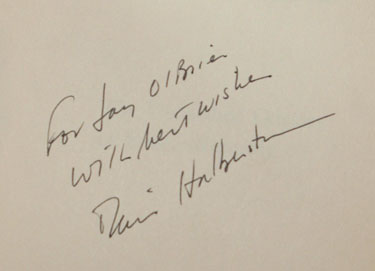 For Jay O'Brien
with best wishes
David Halberstam